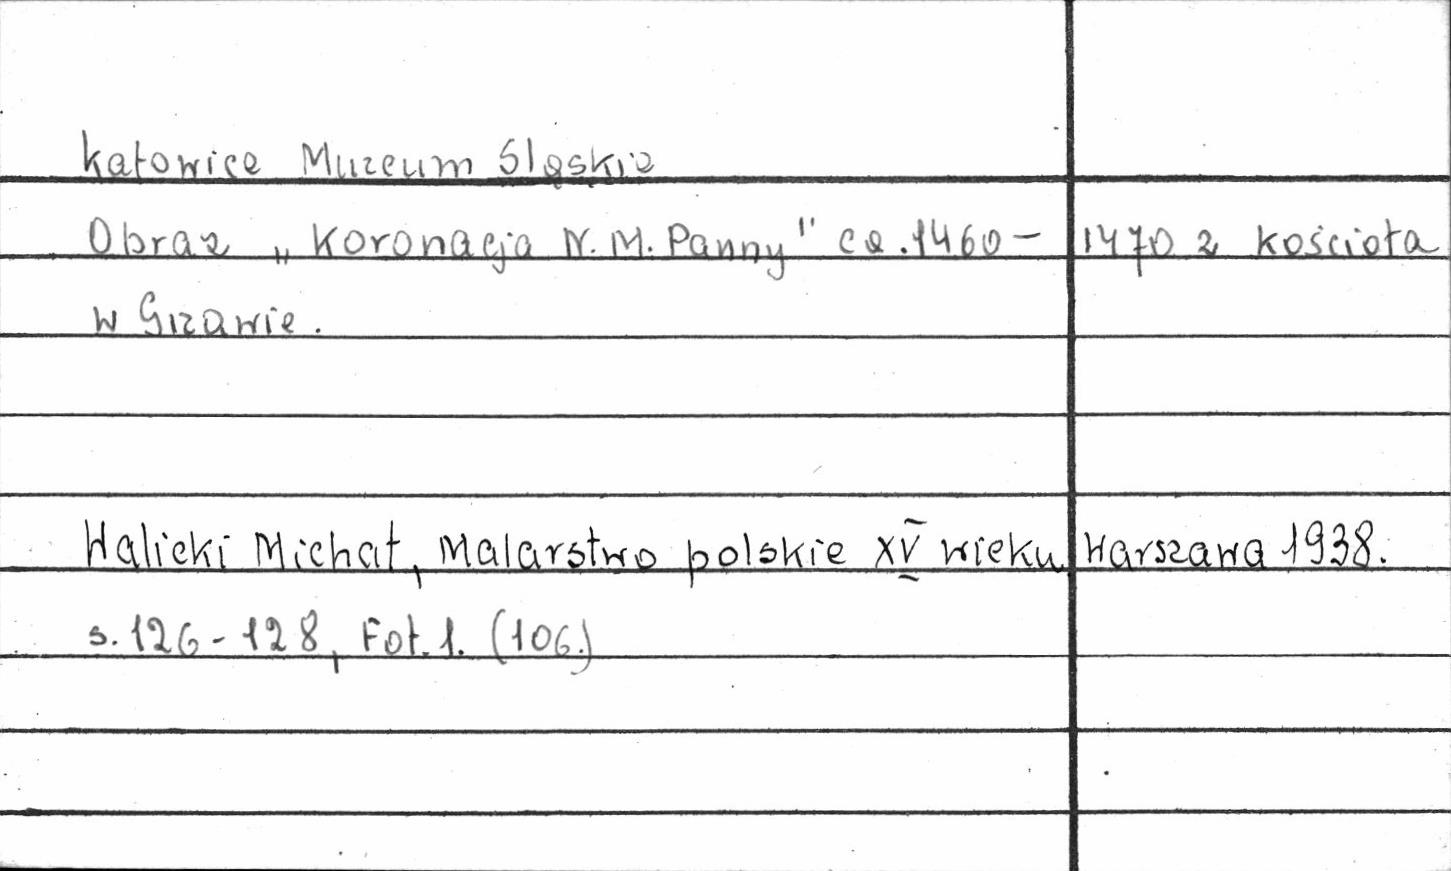 Katowice Muzeum Śląskie
Obraz „Koronacja N. M. Panny" ca. 1460 - 1470 z kościoła
w Gizawie.
Walicki Michał, Malarstwo polskie XV wieku, Warszawa 1938.
s. 126-128, Fot. 1. (106.)